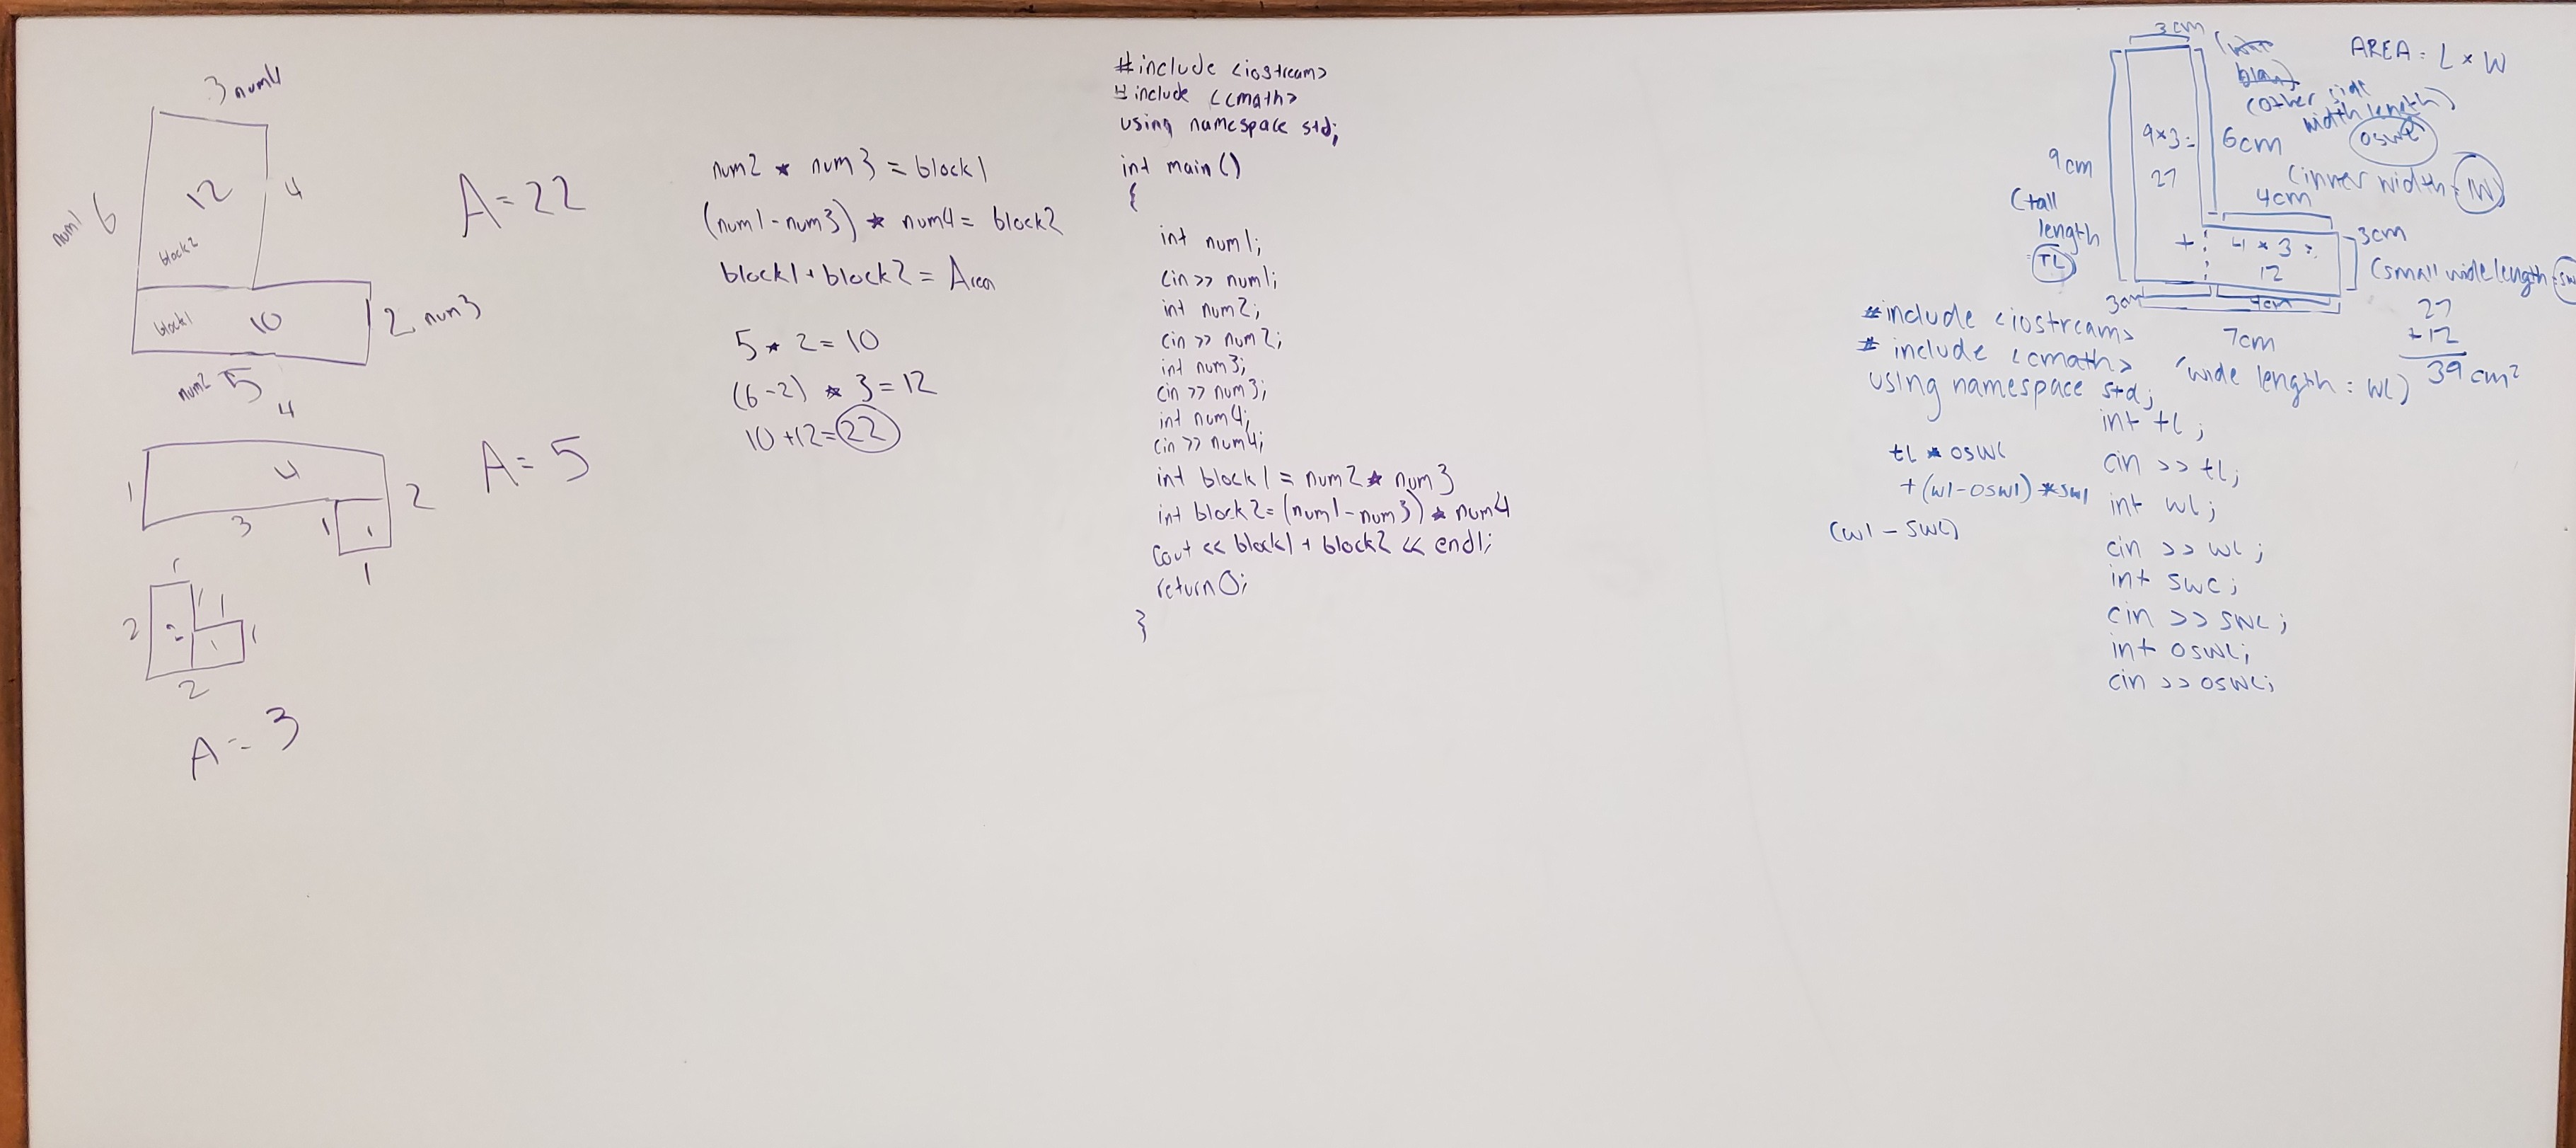 3 num4
num1 6
12
4
block2
block1
10
2 num3
num2 5
A = 22
4
4
1
2
3
1
1
1
A = 5
1
2
2
1
1
1
1
2
A = 3
num2 * num3 = block1
(num1 - num3) * num4 = block2
block1 + block2 = Area
5 * 2 = 10
(6-2) * 3 = 12
10 + 12 = 22
#include <iostream>
#include <cmath>
using namespace std;
int main()
{
int num1;
cin >> num1;
int num2;
cin >> num2;
int num3;
cin >> num3;
int num4;
cin >> num4;
int block1 = num2 * num3
int block2 = (num1 - num3) * num4
cout << block1 + block2 << endl;
return 0;
}
3cm
AREA = L × W
(other side
width length)
oswl
9×3=
27
6cm
9cm
(tall
length
TL)
(inner width = IW)
4cm
+
4 * 3 =
12
3cm
(small wide length =
3cm
4cm
7cm
(wide length = wl)
27
+12
39cm²
#include <iostream>
# include <cmath>
using namespace std;
int tl;
cin >> tl;
int wl;
cin >> wl;
int swl;
cin >> swl;
int oswl;
cin >> oswl;
tl * oswl
+ (wl - oswl) * swl
(wl - swl)